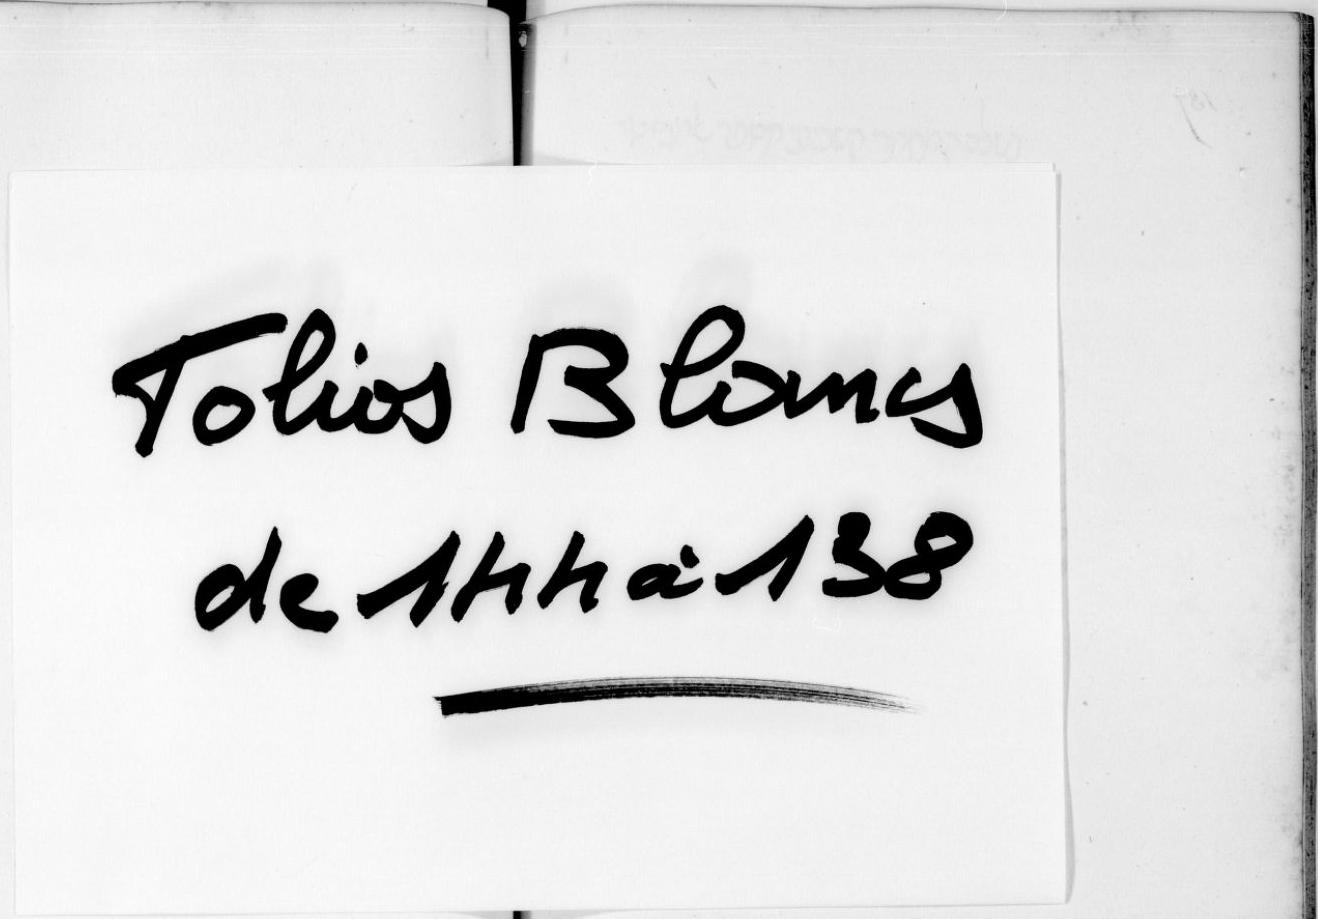 Folios Blancs
de 144 à 138